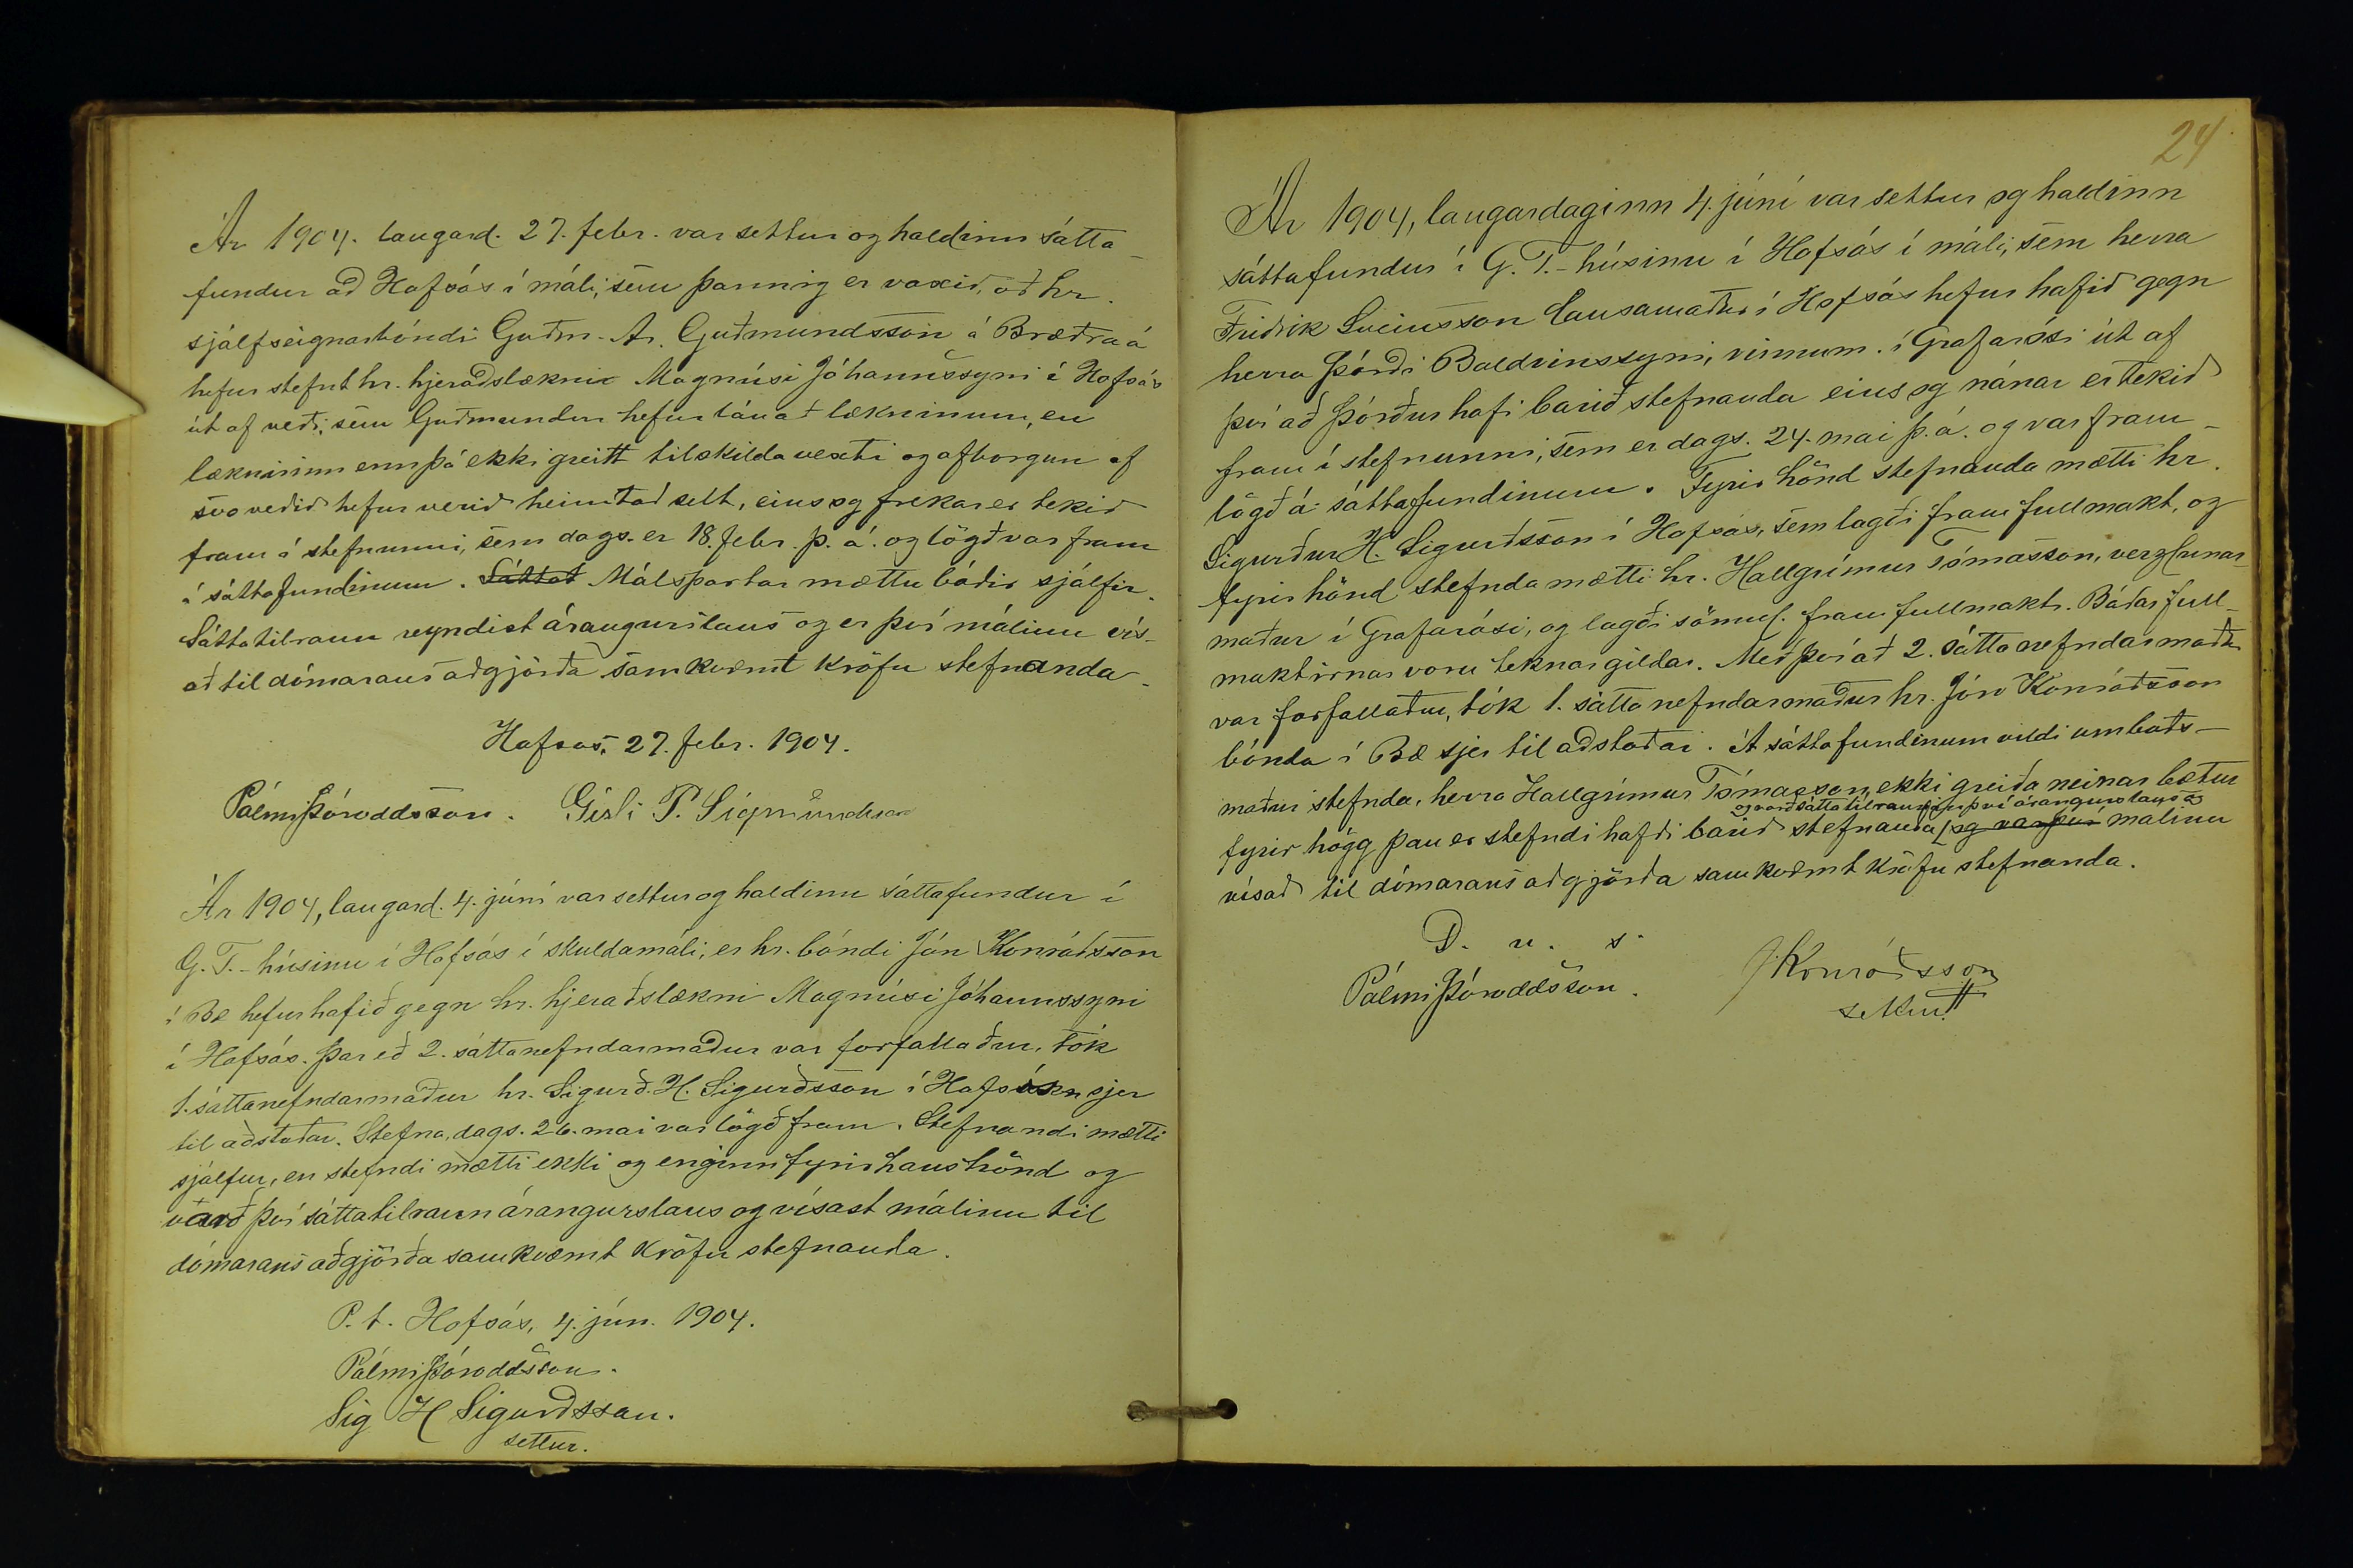 Ár 1904. laugard. 27. febr. var settur og haldinn sátta-
fundur að Hofsós í máli, sem þannig er vaxið, að hr.
sjálfseignarbóndi Guðm. Ar. Guðmundsson á Bræðraá
hefur stefnt hr. hjeraðslæknir Magnúsi Jóhannssyni í Hofsós
út af veði, sem Guðmundur hefur lánað lækninum, en
læknirinn enn þá ekki greitt tilskilda vexti og afborgun af
svo veðið hefur verið heimtað selt, eins og frekar er tekið
fram í stefnunni, sem dags. er 18. febr. þ. á. og lögð var fram
á sáttafundinum. Sáttat Málspartar mættu báðir sjálfir.
Sáttatilraun reyndist árangurslaus og er því málinu vís-
að til dómarans aðgjörða samkvæmt kröfu stefnanda.
Hofsós, 27. febr. 1904.
Pálmi Þóroddsson. Gísli P. Sigmundsson
Ár 1904, laugard. 4. júní var settur og haldinn sáttafundur í
G. T.-húsinu í Hofsós í skuldamáli, er hr. bóndi Jón Konráðsson
í Bæ hefur hafið gegn hr. hjeraðslækni Magnúsi Jóhannssyni
í Hofsós. Þar eð 2. sáttanefndarmaður var forfallaður, tók
1. sáttanefndarmaður hr. Sigurð. H. Sigurðsson í Hofsós sjer
til aðstoðar. Stefna, dags. 26. mai var lögð fram. Stefnandi mætti
sjálfur, en stefndi mætti ekki og enginn fyrir hans hönd og
varð því sáttatilraun árangurslaus og vísast málinu til
dómarans aðgjörða samkvæmt kröfu stefnanda.
P. t. Hofsós, 4. jún. 1904.
Pálmi Þóroddsson.
Sig H Sigurðsson.
settur.
24
Ár 1904, laugardaginn 4. júní var settur og haldinn
sáttafundur í G. T.-húsinu í Hofsós í máli, sem herra
Friðrik Luciusson lausamaður í Hofsós hefur hafið gegn
herra Þórði Baldvinssyni, vinnum. í Grafarósi út af
því að Þórður hafi barið stefnanda eins og nánar er tekið
fram í stefnunni, sem er dags. 24. mai þ. á. og var fram-
lögð á sáttafundinum. Fyrir hönd stefnanda mætti hr.
Sigurður H. Sigurðsson í Hofsós, sem lagði fram fullmakt, og
fyrir hönd stefnda mætti hr. Hallgrímur Tómasson, verzlunar-
maður í Grafarósi, og lagði sömul. fram fullmakt. Báðar full-
maktirnar voru teknar gildar. Með því að 2. sáttanefndarmaður
var forfallaður, tók 1. sáttanefndarmaður hr. Jón Konráðsson
bónda í Bæ sjer til aðstoðar. Á sáttafundinum vildi umboðs-
maður stefnda, herra Hallgrímur Tómasson ekki greiða neinar bætur
og varð sáttatilraunin því árangurslaus og
fyrir högg þau er stefndi hafði barið stefnanda og var því malinu
vísað til dómarans aðgjörða samkvæmt kröfu stefnanda.
D. u. s.
Pálmi Þóroddsson. J Konráðsson
settur